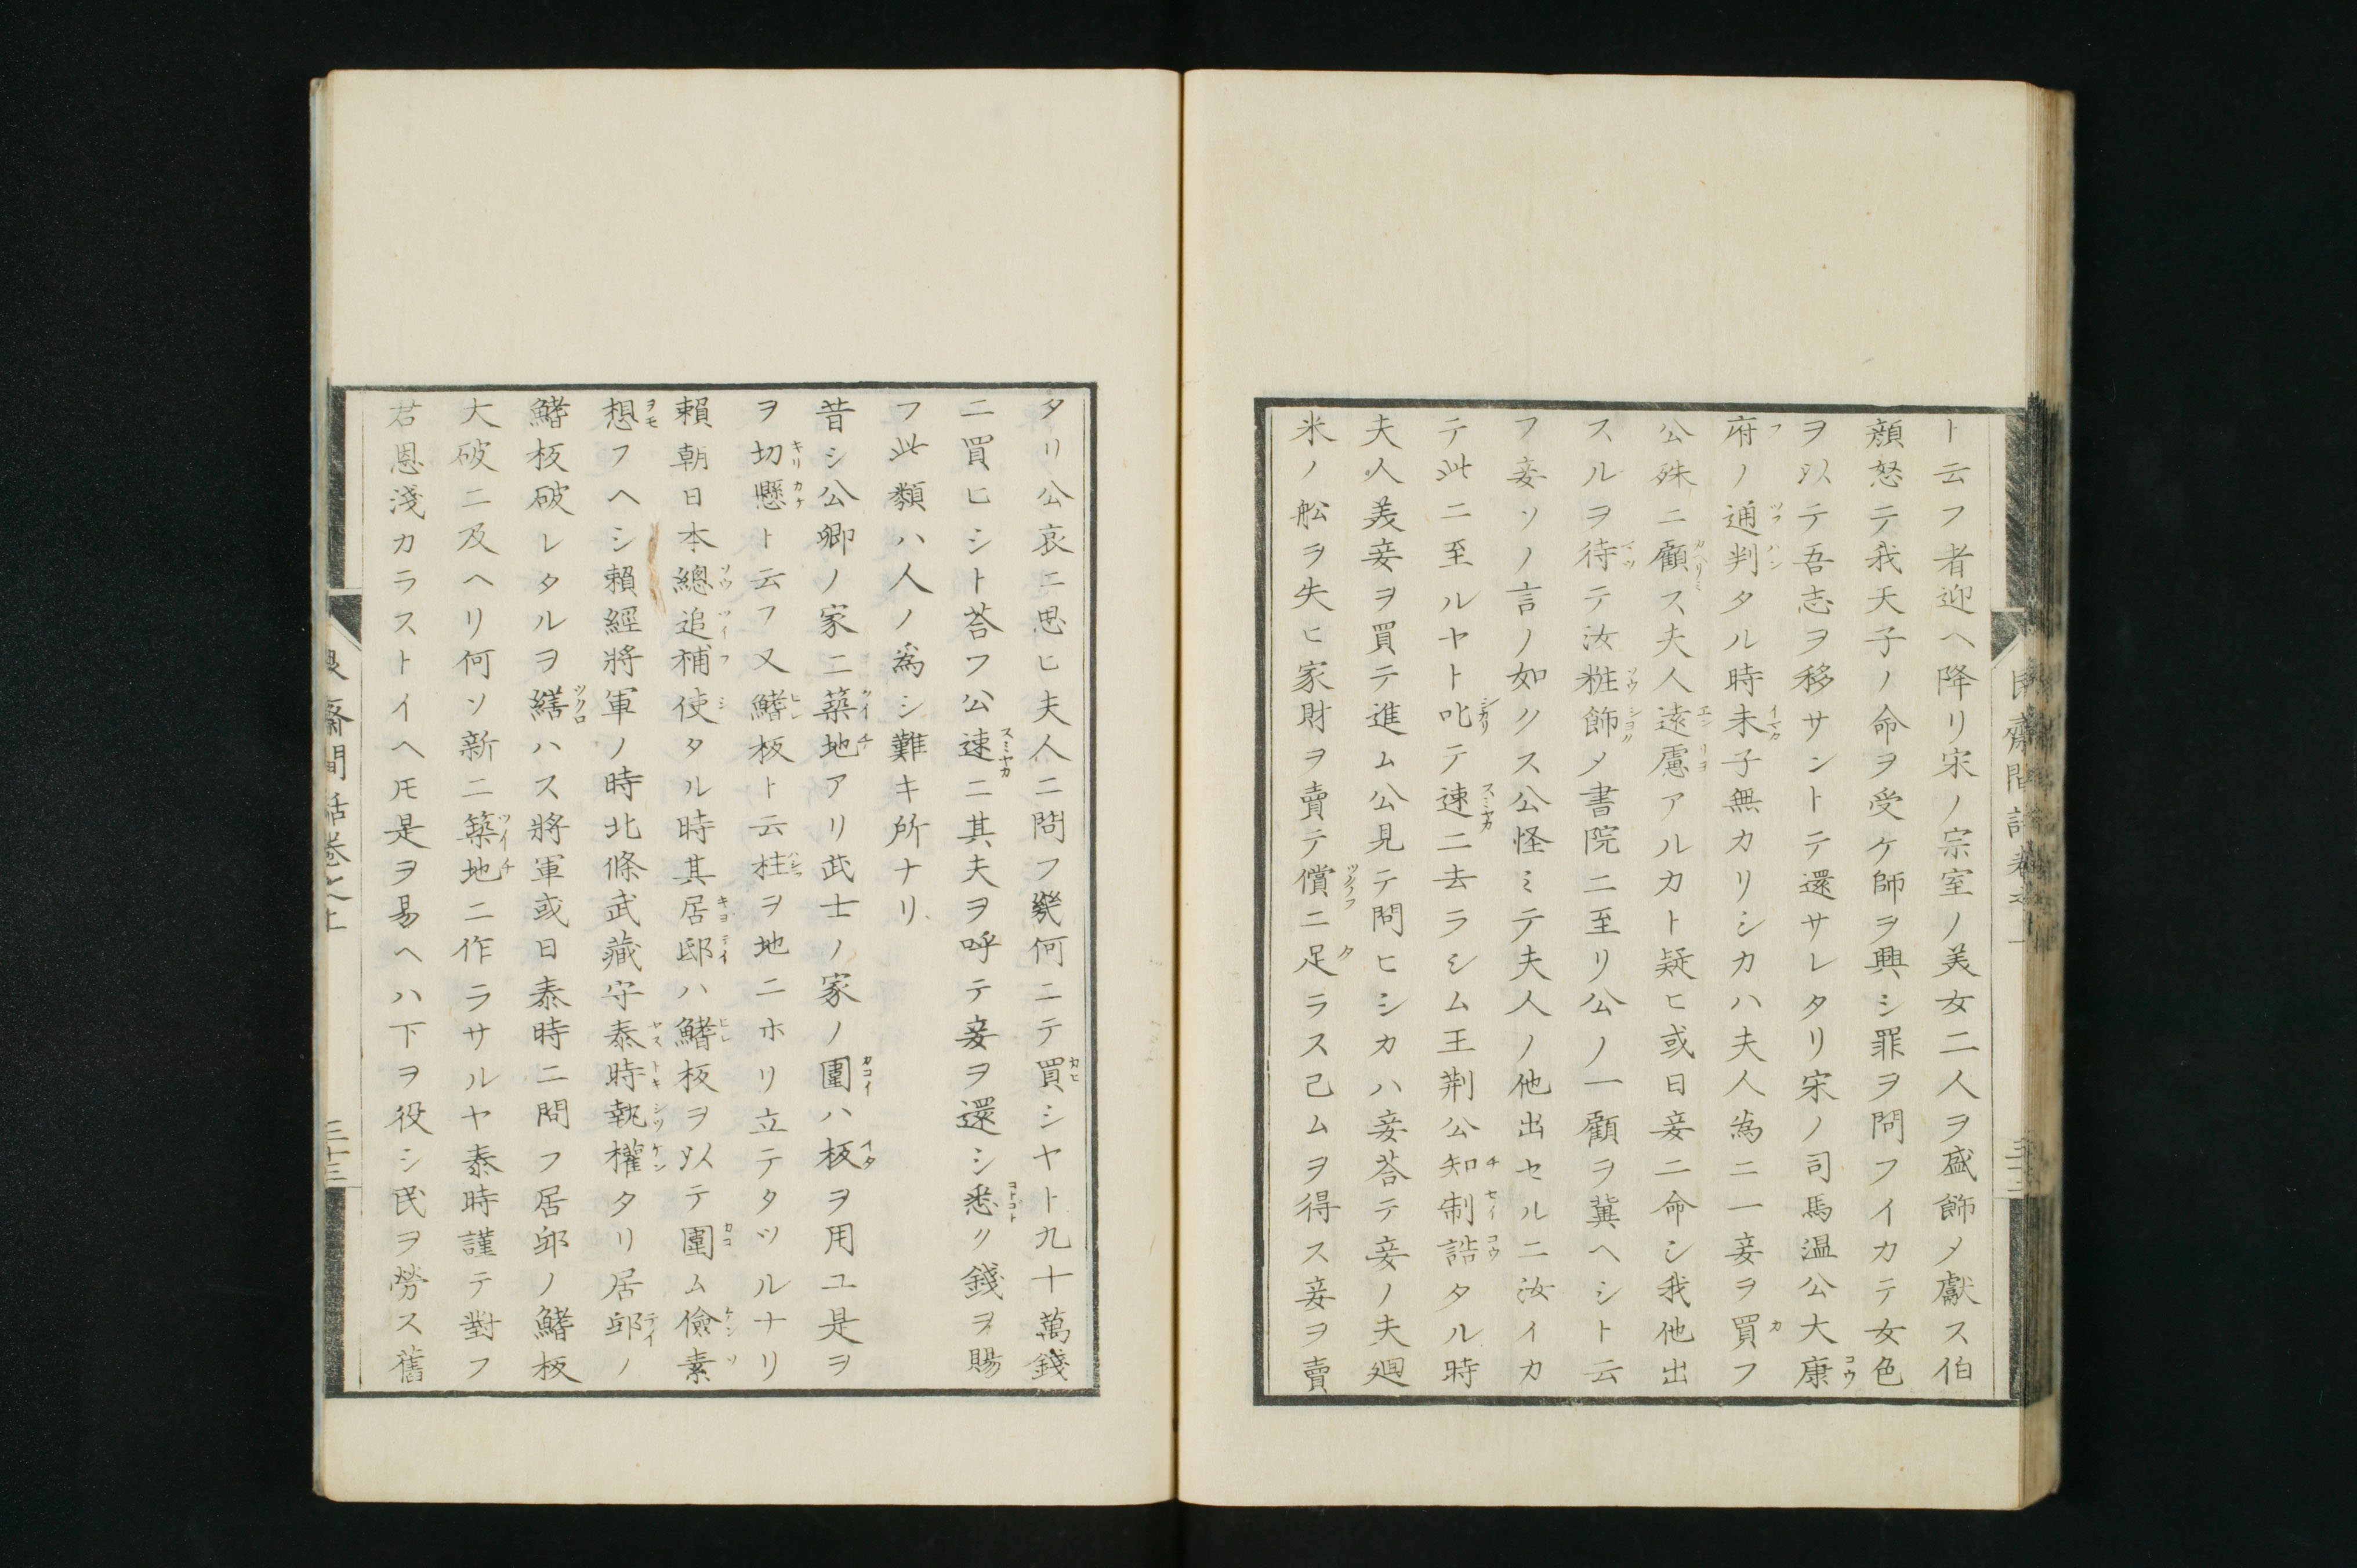 ト云フ者迎ヘ降リ宋ノ宗室ノ美女二人ヲ盛飾メ獻ス伯
顔怒テ我天子ノ命ヲ受ケ師ヲ興シ罪ヲ問フイカテ女色
ヲ以テ吾志ヲ移サントテ還サレタリ宋ノ司馬温公大康
府ノ通判タル時未子無カリシカハ夫人為ニ一妾ヲ買フ
公殊ニ顧ス夫人遠慮アルカト疑ヒ或日妾ニ命シ我他出
スルヲ待テ汝粧飾メ書院ニ至リ公ノ一顧ヲ冀ヘシト云
フ妾ソノ言ノ如クス公怪ミテ夫人ノ他出セルニ汝イカ
テ此ニ至ルヤト叱テ速ニ去ラシム王荆公知制誥タル時
夫人美妾ヲ買テ進ム公見テ問ヒシカハ妾荅テ妾ノ夫廻
米ノ舩ヲ失ヒ家財ヲ賣テ償ニ足ラス己ムヲ得ス妾ヲ賣
タリ公哀ニ思ヒ夫人ニ問フ幾何ニテ買シヤト九十萬錢
ニ買ヒシト荅フ公速ニ其夫ヲ呼テ妾ヲ還シ悉ク錢ヲ賜
フ此類ハ人ノ為シ難キ所ナリ
昔シ公卿ノ家ニ築地アリ武士ノ家ノ圍ハ板ヲ用ユ是ヲ
ヲ切懸ト云フ又鰭板ト云柱ヲ地ニホリ立テタツルナリ
頼朝日本總追補使タル時其居邸ハ鰭板ヲ以テ圍ム儉素
想フヘシ賴經將軍ノ時北條武藏守泰時執權タリ居邸ノ
鰭板破レタルヲ繕ハス將軍或日泰時ニ問フ居邸ノ鰭板
大破ニ及ヘリ何ソ新ニ築地ニ作ラサルヤ泰時謹テ對フ
君恩淺カラストイヘ𪜈是ヲ易ヘハ下ヲ役シ民ヲ勞ス舊
齋間話卷之上
三十三